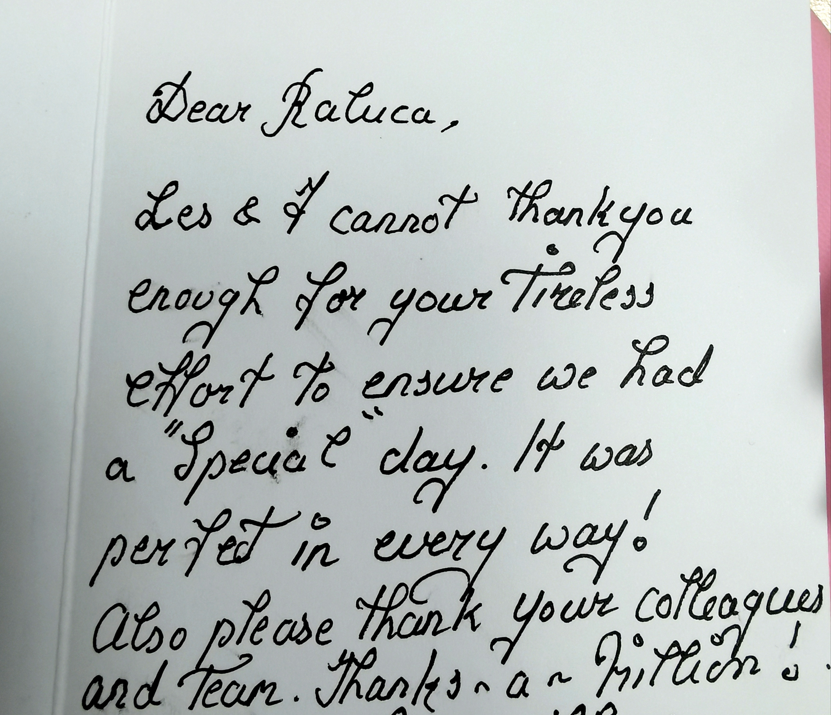 Dear Raluca,
Les & I cannot thank you
enough for your Tireless
effort to ensure we had
a "Special" day. It was
perfect in every way!
Also please thank your colleagues
and Team. Thanks~a~Million!